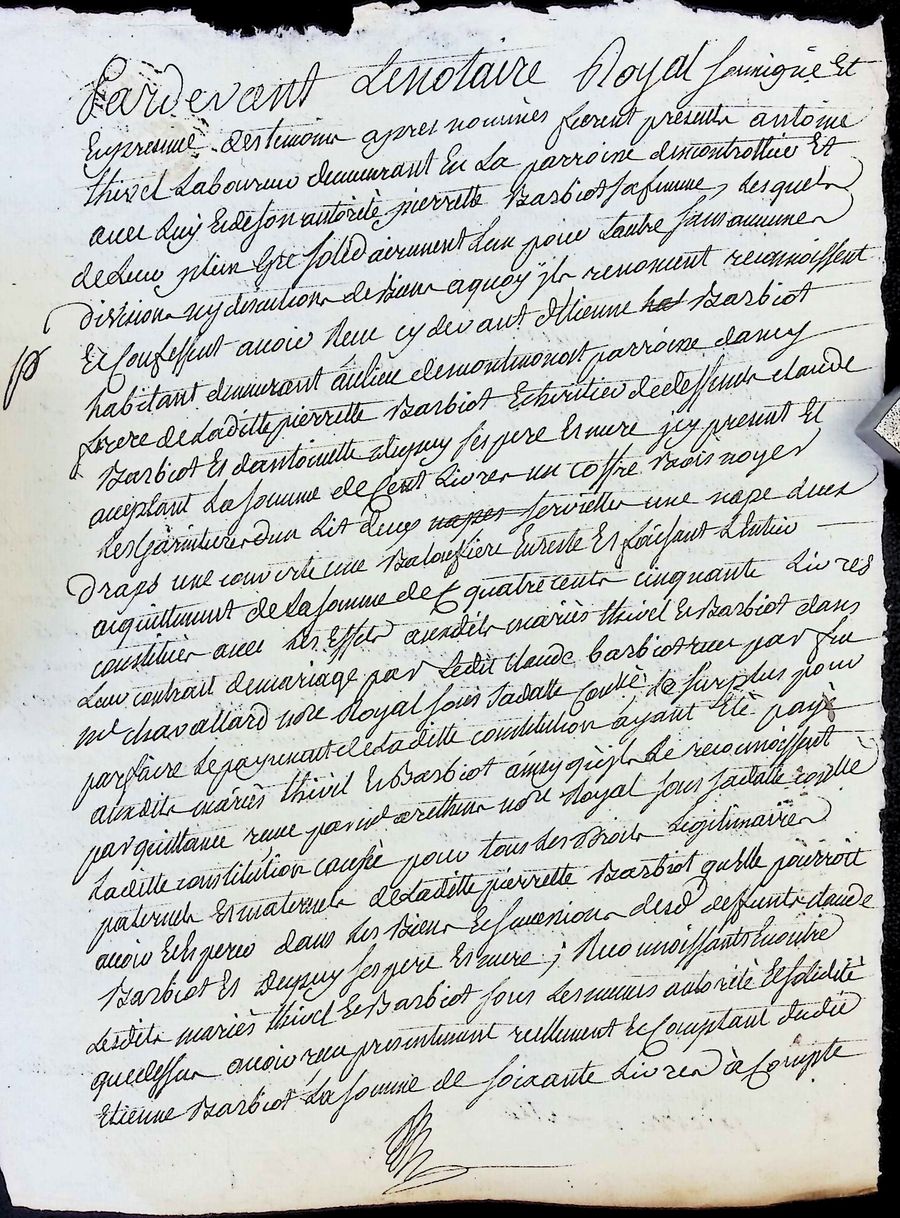 Pardevant Le notaire Royal soussigné Et
En presence des temoins apres nommés furent presents antoine
thivel Laboureur demeurant En La parroisse de montrottier Et
avec Luy Et de son autorité pierrette Barbiot sa femme, Lesquels
de Leur plein Gré solidairement L'un pour L'autre sans aucune
division ny discution de Biens a quoy ils renoncent reconnoissent
Et Confessent avoir Reçu cy devant d'Etienne Barbiot
habitant demeurant au lieu de parroisse dancy
frere de Laditte pierrette Barbiot Et heritier de deffunts claude
Barbiot Et d'antoinette Dupuy ses pere Et mere icy present Et
acceptant La somme de Cent Livres un coffre Bois noyer
Les Garnitures d'un Lit deux napes serviettes une nape deux
Draps une couverte une En reste Et faisant L'entier
acquittement de La somme de quatre cents cinquante Livres
constituée avec Les Effets auxdits mariés thivel Et Barbiot dans
Leur contrat de mariage par Ledit Claude barbiot reçu par feu
me chavallard nore Royal sous sa datte Conllé, Le surplus pour
parfaire Le payement de Laditte constitution ayant Eté payé
auxdits mariés thivel Et Barbiot ainsy qu'ils Le reconnoissent
par quittance reçue par me nore Royal sous sa datte conllé
Laditte constitution causée pour tous Les Droits Legitimaires
paternels Et maternels de Laditte pierrette Barbiot qu'elle pourroit
avoir Et Esperer dans Les Biens Et successions desd deffunts claude
Barbiot Et Dupuy ses pere Et mere; Reconnoissants En outre
Lesdits mariés thivel Et Barbiot sous Les memes autorité Et solidité
que dessus avoir reçu presentement reellement Et Comptant dudit
Etienne Barbiot La somme de soixante Livres à Compte